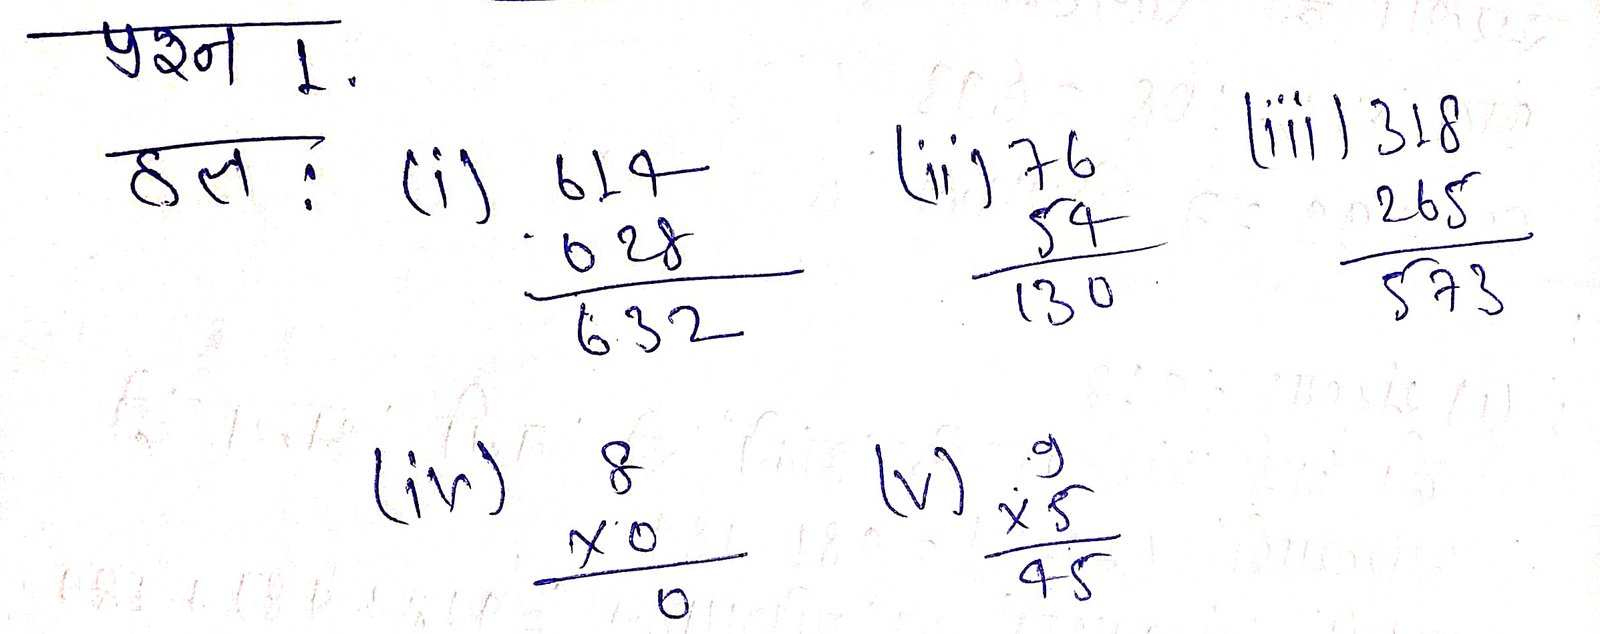 प्रश्न 1.
हल : (i) 614 (ii) 76 (iii) 318
028 54 265
632 130 573
(iv) 8 (v) 9
×0 ×5
0 45